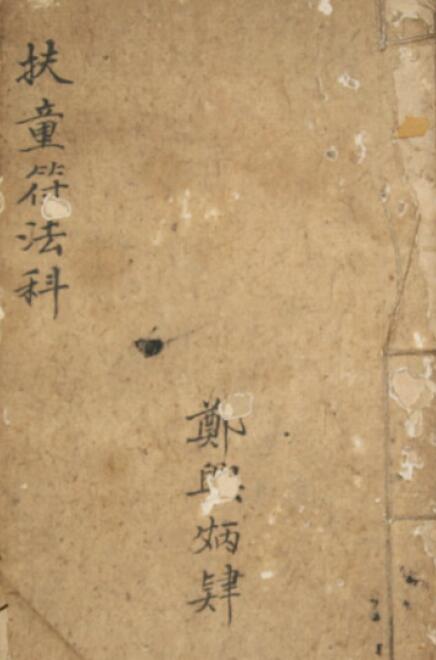 扶童符法科
鄭炳肄